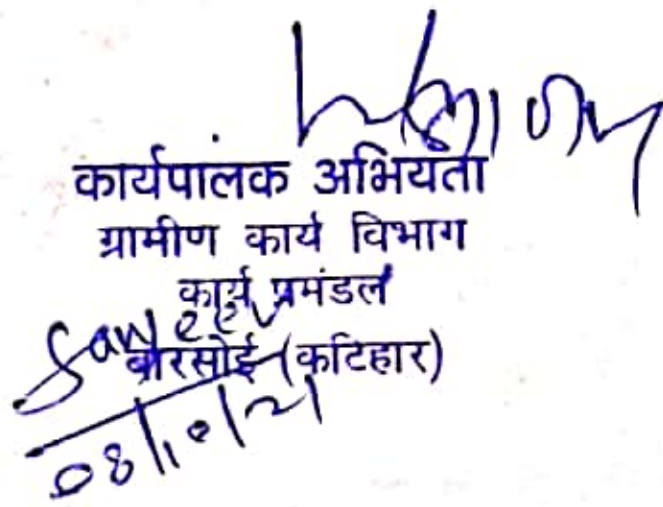 कार्यपालक अभियंता
ग्रामीण कार्य विभाग
कार्य प्रमंडल
बारसोई (कटिहार)
08/10/21